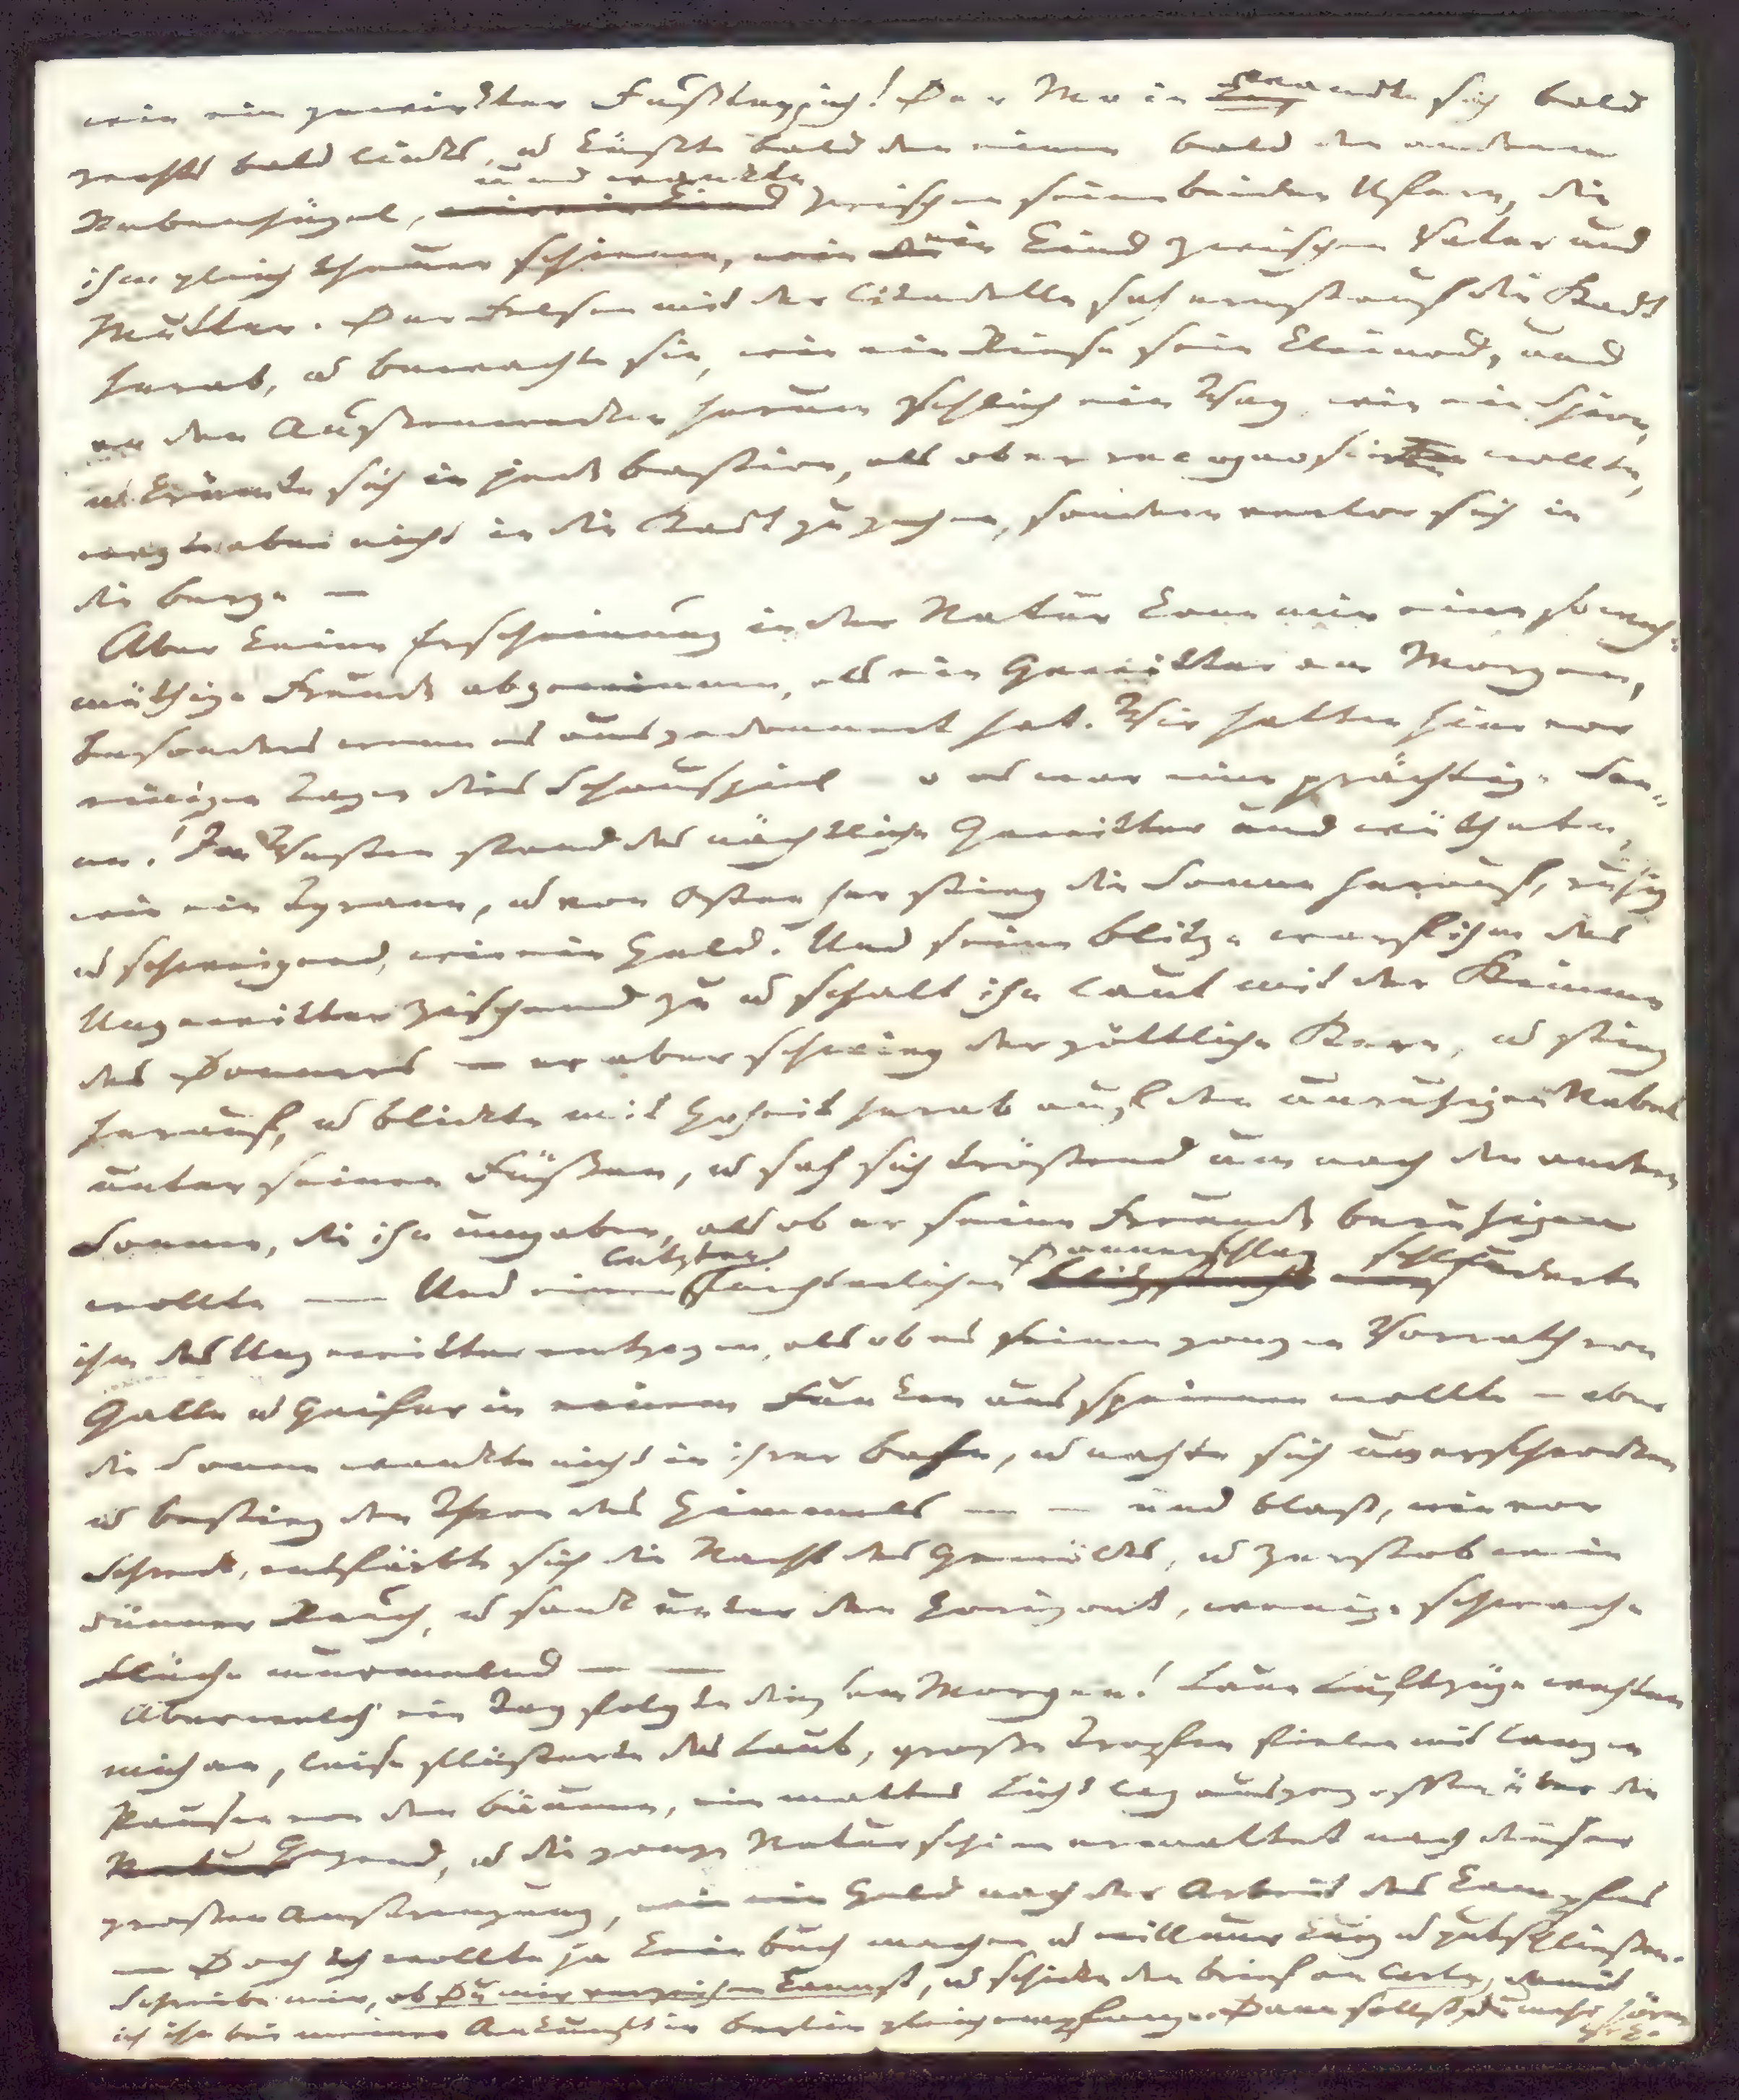 wie ein gewirkter Fußteppich! Der Main wandte sich bald
rechts bald links, u küßte bald den einen bald den andern
Rebenhügel, und wankte zwischen seinen beiden Ufern, die
ihm gleich theuer schienen, wie ein Kind zwischen Vater und
Mutter. Der Felsen mit der Citadelle sah ernst auf die Stadt
herab, u bewachte sie, wie ein Riese sein Kleinod, und
an den Außenwerken herum schlich ein Weg, wie ein Spion,
u krümmte sich in jede Bastion, als ob er recognosciren wollte,
wagte aber nicht in die Stadt zu gehen, sondern verlor sich in
die Berge –
Aber keine Erscheinung in der Natur kann mir eine so weh-
müthige Freude abgewinnen, als ein Gewitter am Morgen,
besonders wenn es ausgedonnert hat. Wir hatten hier vor
einigen Tagen dies Schauspiel – o es war eine prächtige Scen-
ne! Im Westen stand das nächtliche Gewitter und wüthete,
wie ein Tyrann, u von Osten her stieg die Sonne herauf, ruhig
u schweigend, wie ein Held. Und seine Blitze warf ihm das
Ungewitter zischend zu u schalt ihn laut mit der Stimme
des Donners – er aber schwieg der göttliche Stern, u stieg
herauf, u blickte mit Hoheit herab auf den unruhigen Nebel
unter seinen Füßen, u sah sich tröstend um nach den andern
Sonnen, die ihn umgaben, als ob er seine Freunde beruhigen
wollte — Und einen letzten fürchterlichen Donnerschlag schleuderte
ihm das Ungewitter entgegen, als ob es seinen ganzen Vorrath von
Galle u Geifer in einem Funken ausspeien wollte – aber
die Sonne wankte nicht in ihrer Bahn, u nahte sich unerschrocken
u bestieg den Thron des Himmels — — und blaß, wie vor
Schreck, entfärbte sich die Nacht des Gewölks, u zerstob wie
dünner Rauch, u sank unter den Horizont, wenige schwache
Flüche murmelnd — —
Aber welch' ein Tag folgte diesem Morgen! Laue Luftzüge wehten
mich an, leise flüsterte das Laub, große Tropfen fielen mit langen
Pausen von den Bäumen, ein mattes Licht lag ausgegossen über die
Gegend, u die ganze Natur schien ermattet nach dieser
großen Anstrengung, wie ein Held nach der Arbeit des Kampfes
— Doch ich wollte ja kein Buch machen u will nur kurz u gut schließen.
Schreibe mir, ob Du mir verzeihen kannst, u schicke den Brief an Carln, damit
ich ihn bei meiner Ankunft in Berlin gleich empfange. Dann sollst Du mehr hören